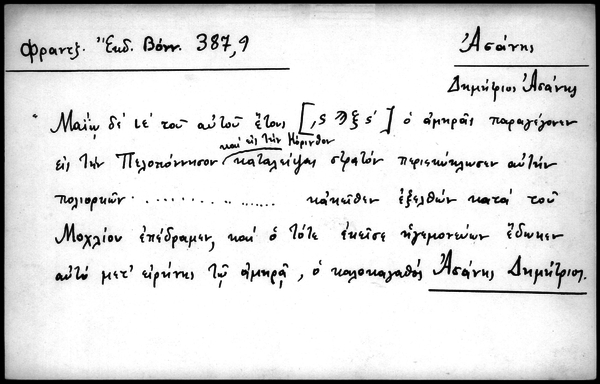 Φραντζ. Ἔκδ. Βόνν. 387,9
Ἀσάνης
Δημήτριος Ἀσάνης
"Μαΐῳ δέ ιε΄ τοῦ αὐτοῦ ἔτους [͵ϛϡξϛ΄] ὁ ἀμηρᾶς παραγέγονεν
καί εἰς τήν Κόρινθον
εἰς τήν Πελοπόννησον καταλείψας στρατόν περιεκύκλωσεν αὐτήν
πολιορκῶν .................. κἀκεῖθεν ἐξελθών κατά τοῦ
Μοχλίου ἐπέδραμεν, καί ὁ τότε ἐκεῖσε ἡγεμονεύων ἔδωκεν
αὐτό μετ' εἰρήνης τῷ ἀμηρᾷ, ὁ καλοκαγαθός Ἀσάνης Δημήτριος.